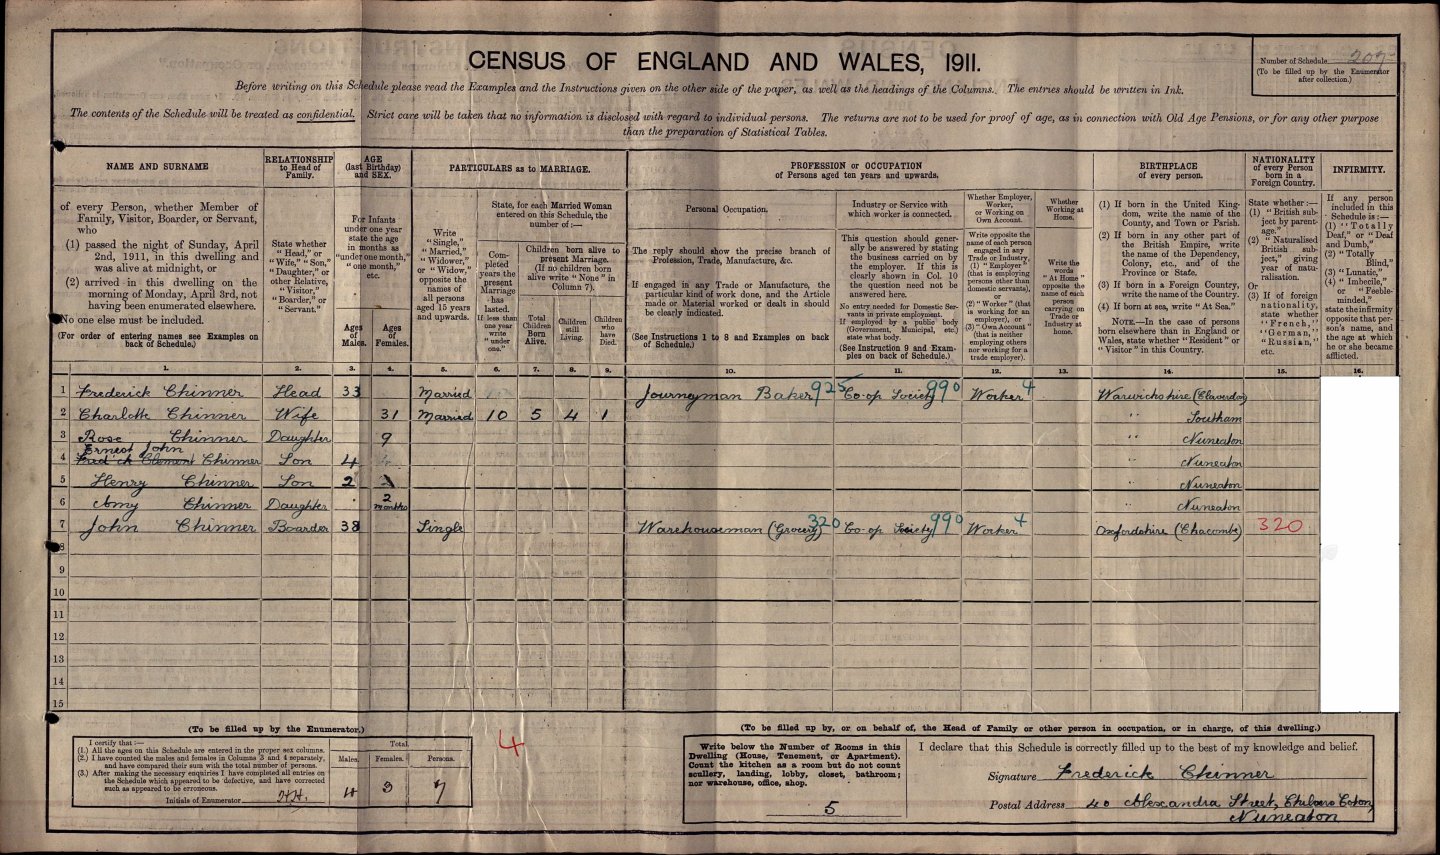 CENSUS OF ENGLAND AND WALES, 1911.
Number of Schedule 207
(To be filled up by the Enumerator after collection.)
Before writing on this Schedule please read the Examples and the Instructions given on the other side of the paper, as well as the headings of the Columns. The entries should be written in Ink.
The contents of the Schedule will be treated as confidential. Strict care will be taken that no information is disclosed with regard to individual persons. The returns are not to be used for proof of age, as in connection with Old Age Pensions, or for any other purpose
than the preparation of Statistical Tables.
NAME AND SURNAME
of every Person, whether Member of
Family, Visitor, Boarder, or Servant,
who
(1) passed the night of Sunday, April
2nd, 1911, in this dwelling and
was alive at midnight, or
(2) arrived in this dwelling on the
morning of Monday, April 3rd, not
having been enumerated elsewhere.
No one else must be included.
(For order of entering names see Examples on
back of Schedule.)
RELATIONSHIP
to Head of
Family.
State whether
"Head," or
"Wife," "Son,"
"Daughter," or
other Relative,
"Visitor,"
"Boarder," or
"Servant."
AGE
(last Birthday)
and SEX.
For Infants
under one year
state the age
in months as
"under one month,"
"one month,"
etc.
Ages
of
Males.
Ages
of
Females.
PARTICULARS as to MARRIAGE.
Write
"Single,"
"Married,"
"Widower,"
or "Widow,"
opposite the
names of
all persons
aged 15 years
and upwards.
State, for each Married Woman
entered on this Schedule, the
number of:—
Com-
pleted
years the
present
Marriage
has
lasted.
If less than
one year
write
"under
one."
Children born alive to
present Marriage.
(If no children born
alive write "None" in
Column 7).
Total
Children
Born
Alive.
Children
still
Living.
Children
who
have
Died.
PROFESSION or OCCUPATION
of Persons aged ten years and upwards.
Personal Occupation.
The reply should show the precise branch of
Profession, Trade, Manufacture, &c.
If engaged in any Trade or Manufacture, the
particular kind of work done, and the Article
made or Material worked or dealt in should
be clearly indicated.
(See Instructions 1 to 8 and Examples on back
of Schedule.)
Industry or Service with
which worker is connected.
This question should gener-
ally be answered by stating
the business carried on by
the employer. If this is
clearly shown in Col. 10
the question need not be
answered here.
No entry needed for Domestic Ser-
vants in private employment.
If employed by a public body
(Government, Municipal, etc.)
state what body.
(See Instruction 9 and Exam-
ples on back of Schedule.)
Whether Employer,
Worker,
or Working on
Own Account.
Write opposite the
name of each person
engaged in any
Trade or Industry,
(1) "Employer"
(that is employing
persons other than
domestic servants),
or
(2) "Worker" (that
is working for an
employer), or
(3) "Own Account"
(that is neither
employing others
nor working for a
trade employer).
Whether
Working at
Home.
Write the
words
"At Home"
opposite the
name of each
person
carrying on
Trade or
Industry at
home.
BIRTHPLACE
of every person.
(1) If born in the United King-
dom, write the name of the
County, and Town or Parish.
(2) If born in any other part of
the British Empire, write
the name of the Dependency,
Colony, etc., and of the
Province or State.
(3) If born in a Foreign Country,
write the name of the Country.
(4) If born at sea, write "At Sea."
NOTE.—In the case of persons
born elsewhere than in England or
Wales, state whether "Resident" or
"Visitor" in this Country.
NATIONALITY
of every Person
born in a
Foreign Country.
State whether:—
(1) "British sub-
ject by parent-
age."
(2) "Naturalised
British sub-
ject," giving
year of natu-
ralisation.
Or
(3) If of foreign
nationality,
state whether
"French,"
"German,"
"Russian,"
etc.
INFIRMITY.
If any person
included in this
Schedule is:—
(1) "Totally
Deaf," or "Deaf
and Dumb,"
(2) "Totally
Blind,"
(3) "Lunatic,"
(4) "Imbecile,"
or "Feeble-
minded,"
state the infirmity
opposite that per-
son's name, and
the age at which
he or she became
afflicted.
1. 2. 3. 4. 5. 6. 7. 8. 9. 10. 11. 12. 13. 14. 15. 16.
1 Frederick Chinner Head 33 Married Journeyman Baker 925 Co-op Society 990 Worker 4 Warwickshire (Claverdon)
2 Charlotte Chinner Wife 31 Married 10 5 4 1 " Southam
3 Rose Chinner Daughter 9 " Nuneaton
Ernest John
4 Fred'ck Clement Chinner Son 4 " Nuneaton
5 Henry Chinner Son 2 " Nuneaton
6 Amy Chinner Daughter 2 months " Nuneaton
7 John Chinner Boarder 38 Single Warehouseman (Grocery) 320 Co-op Society 990 Worker 4 Oxfordshire (Chacombe) 320
8
9
10
11
12
13
14
15
(To be filled up by the Enumerator.)
I certify that:—
(1.) All the ages on this Schedule are entered in the proper sex columns.
(2.) I have counted the males and females in Columns 3 and 4 separately,
and have compared their sum with the total number of persons.
(3.) After making the necessary enquiries I have completed all entries on
the Schedule which appeared to be defective, and have corrected
such as appeared to be erroneous.
Initials of Enumerator HH.
Total.
Males. Females. Persons.
4 3 7
4
(To be filled up by, or on behalf of, the Head of Family or other person in occupation, or in charge, of this dwelling.)
Write below the Number of Rooms in this
Dwelling (House, Tenement, or Apartment).
Count the kitchen as a room but do not count
scullery, landing, lobby, closet, bathroom;
nor warehouse, office, shop.
5
I declare that this Schedule is correctly filled up to the best of my knowledge and belief.
Signature Frederick Chinner
Postal Address 40 Alexandra Street, Chilvers Coton,
Nuneaton